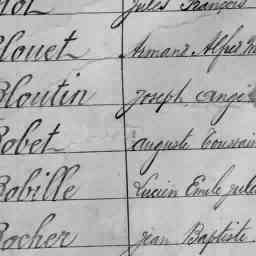 Jules François
Clouet Armand Alfred
Bloutin Joseph
Bobet Auguste Toussain
Bobille Lucien Emile Jule
Bocher Jean Baptiste